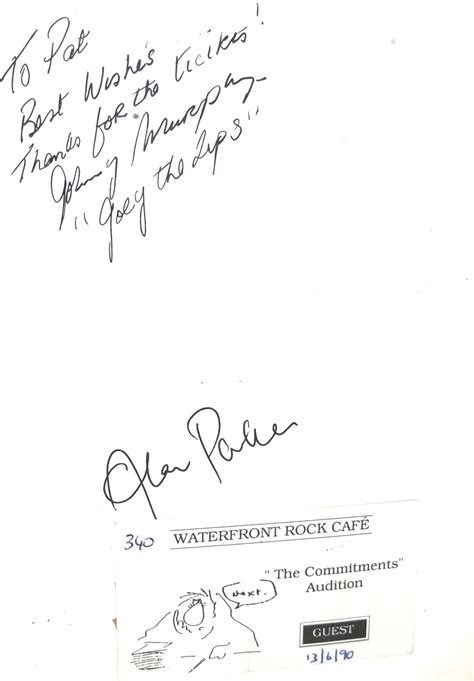 To Pat
Best Wishes
Thanks for the tickets!
Johnny Murphy
"Joey the Lips"
Alan Parker
340 WATERFRONT ROCK CAFÉ
"The Commitments"
Audition
Next.
GUEST
13/6/90